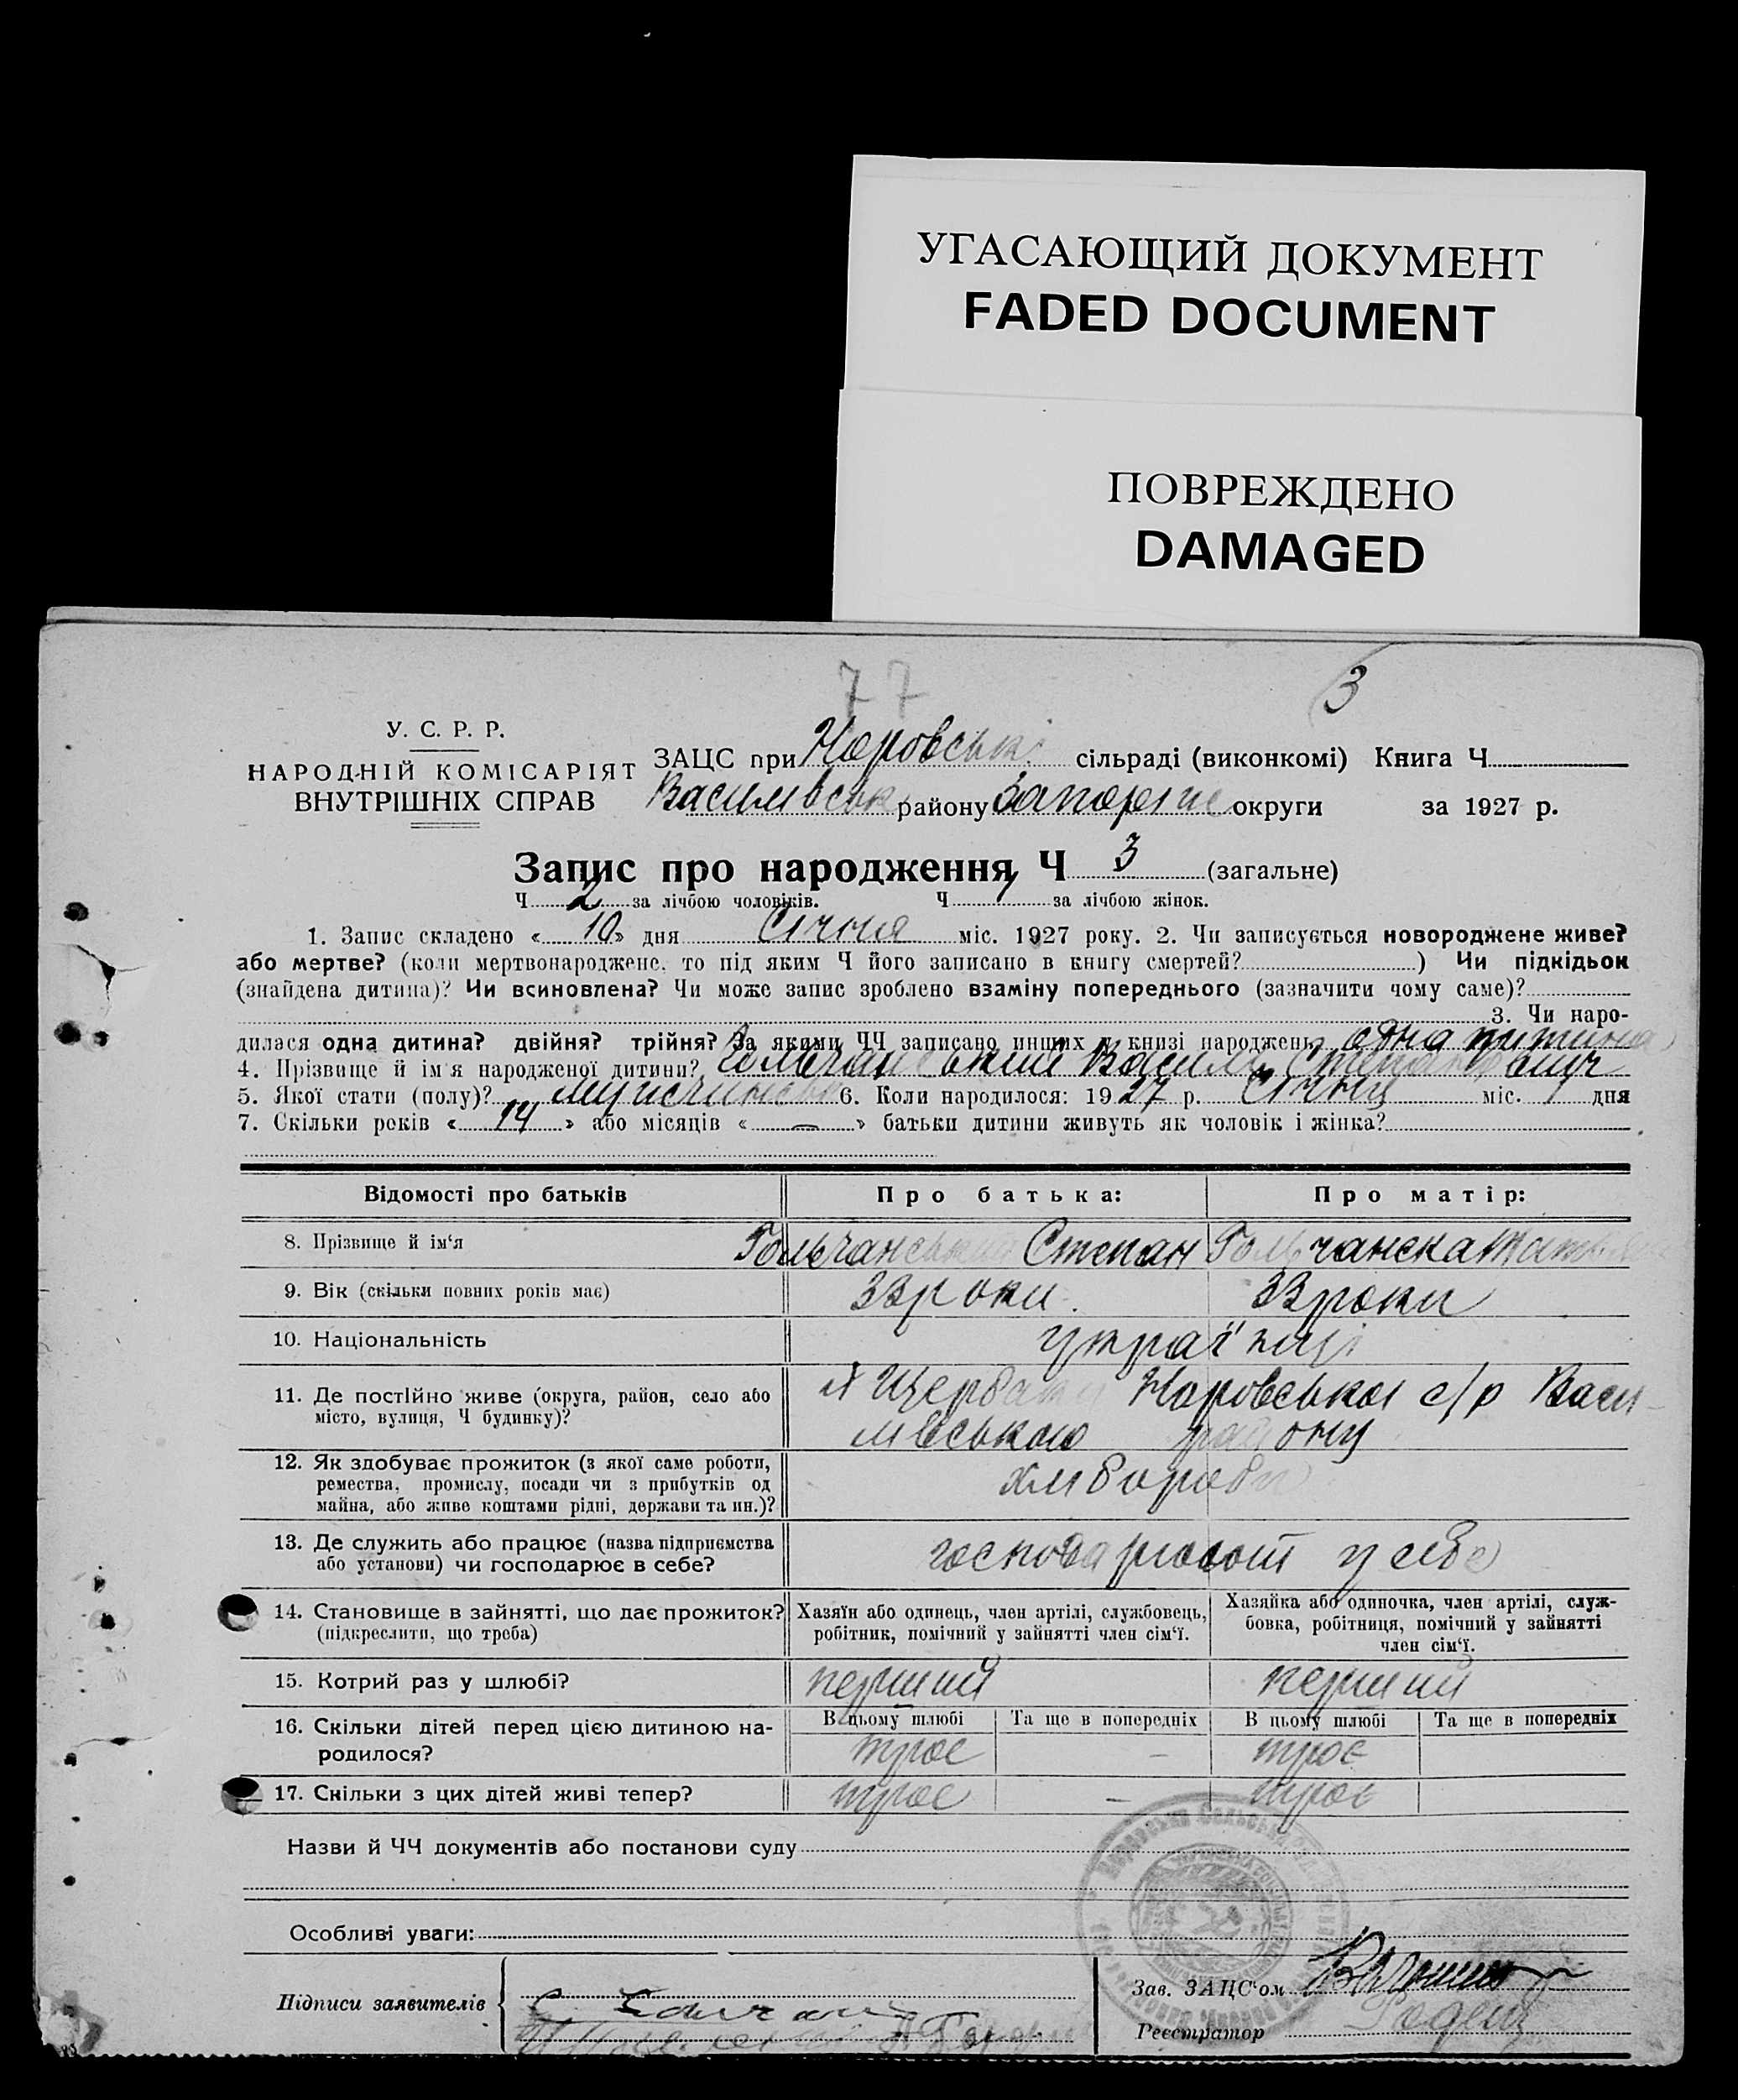 УГАСАЮЩИЙ ДОКУМЕНТ
FADED DOCUMENT
ПОВРЕЖДЕНО
DAMAGED
77
3
У. С. Р. Р.
НАРОДНІЙ КОМІСАРІЯТ
ВНУТРІШНІХ СПРАВ
ЗАЦС при сільраді (виконкомі) Книга Ч
району округи за 1927 р.
Запис про народження Ч 3 (загальне)
Ч 2 за лічбою чоловіків. Ч 1 за лічбою жінок.
1. Запис складено « 10 » дня Січня міс. 1927 року. 2. Чи записується новороджене живе?
або мертве? (коли мертвонароджене, то під яким Ч його записано в книгу смертей? ) Чи підкідьок
(знайдена дитина)? Чи всиновлена? Чи може запис зроблено взаміну попереднього (зазначити чому саме)?
3. Чи наро-
дилася одна дитина? двійня? трійня? За якими ЧЧ записано инших у книзі народжень одна
4. Прізвище й ім'я народженої дитини? Гольчанський Василь Степанович
5. Якої стати (полу)? 6. Коли народилося: 1927 р. Січня міс. 1 дня
7. Скільки років « 14 » або місяців « — » батьки дитини живуть як чоловік і жінка?
Відомості про батьків Про батька: Про матір:
8. Прізвище й ім'я Гольчанський Степан Гольчанска
9. Вік (скільки повних років має) 33 роки. 33 роки
10. Національність українці
11. Де постійно живе (округа, район, село або
місто, вулиця, Ч будинку)? с/р Васи-
лівського району
12. Як здобуває прожиток (з якої саме роботи,
ремества, промислу, посади чи з прибутків од
майна, або живе коштами рідні, держави та ин.)?
13. Де служить або працює (назва підприємства
або установи) чи господарює в себе? господарюют у себе
14. Становище в зайнятті, що дає прожиток?
(підкреслити, що треба)
Хазяїн або одинець, член артілі, службовець,
робітник, помічний у зайнятті член сім'ї.
Хазяйка або одиночка, член артілі, служ-
бовка, робітниця, помічний у зайнятті
член сім'ї.
15. Котрий раз у шлюбі? перший перший
16. Скільки дітей перед цією дитиною на-
родилося?
В цьому шлюбі Та ще в попередніх В цьому шлюбі Та ще в попередніх
троє — троє
17. Скільки з цих дітей живі тепер? троє — троє
Назви й ЧЧ документів або постанови суду
Особливі уваги:
Підписи заявителів
Зав. ЗАЦС'ом
Реєстратор